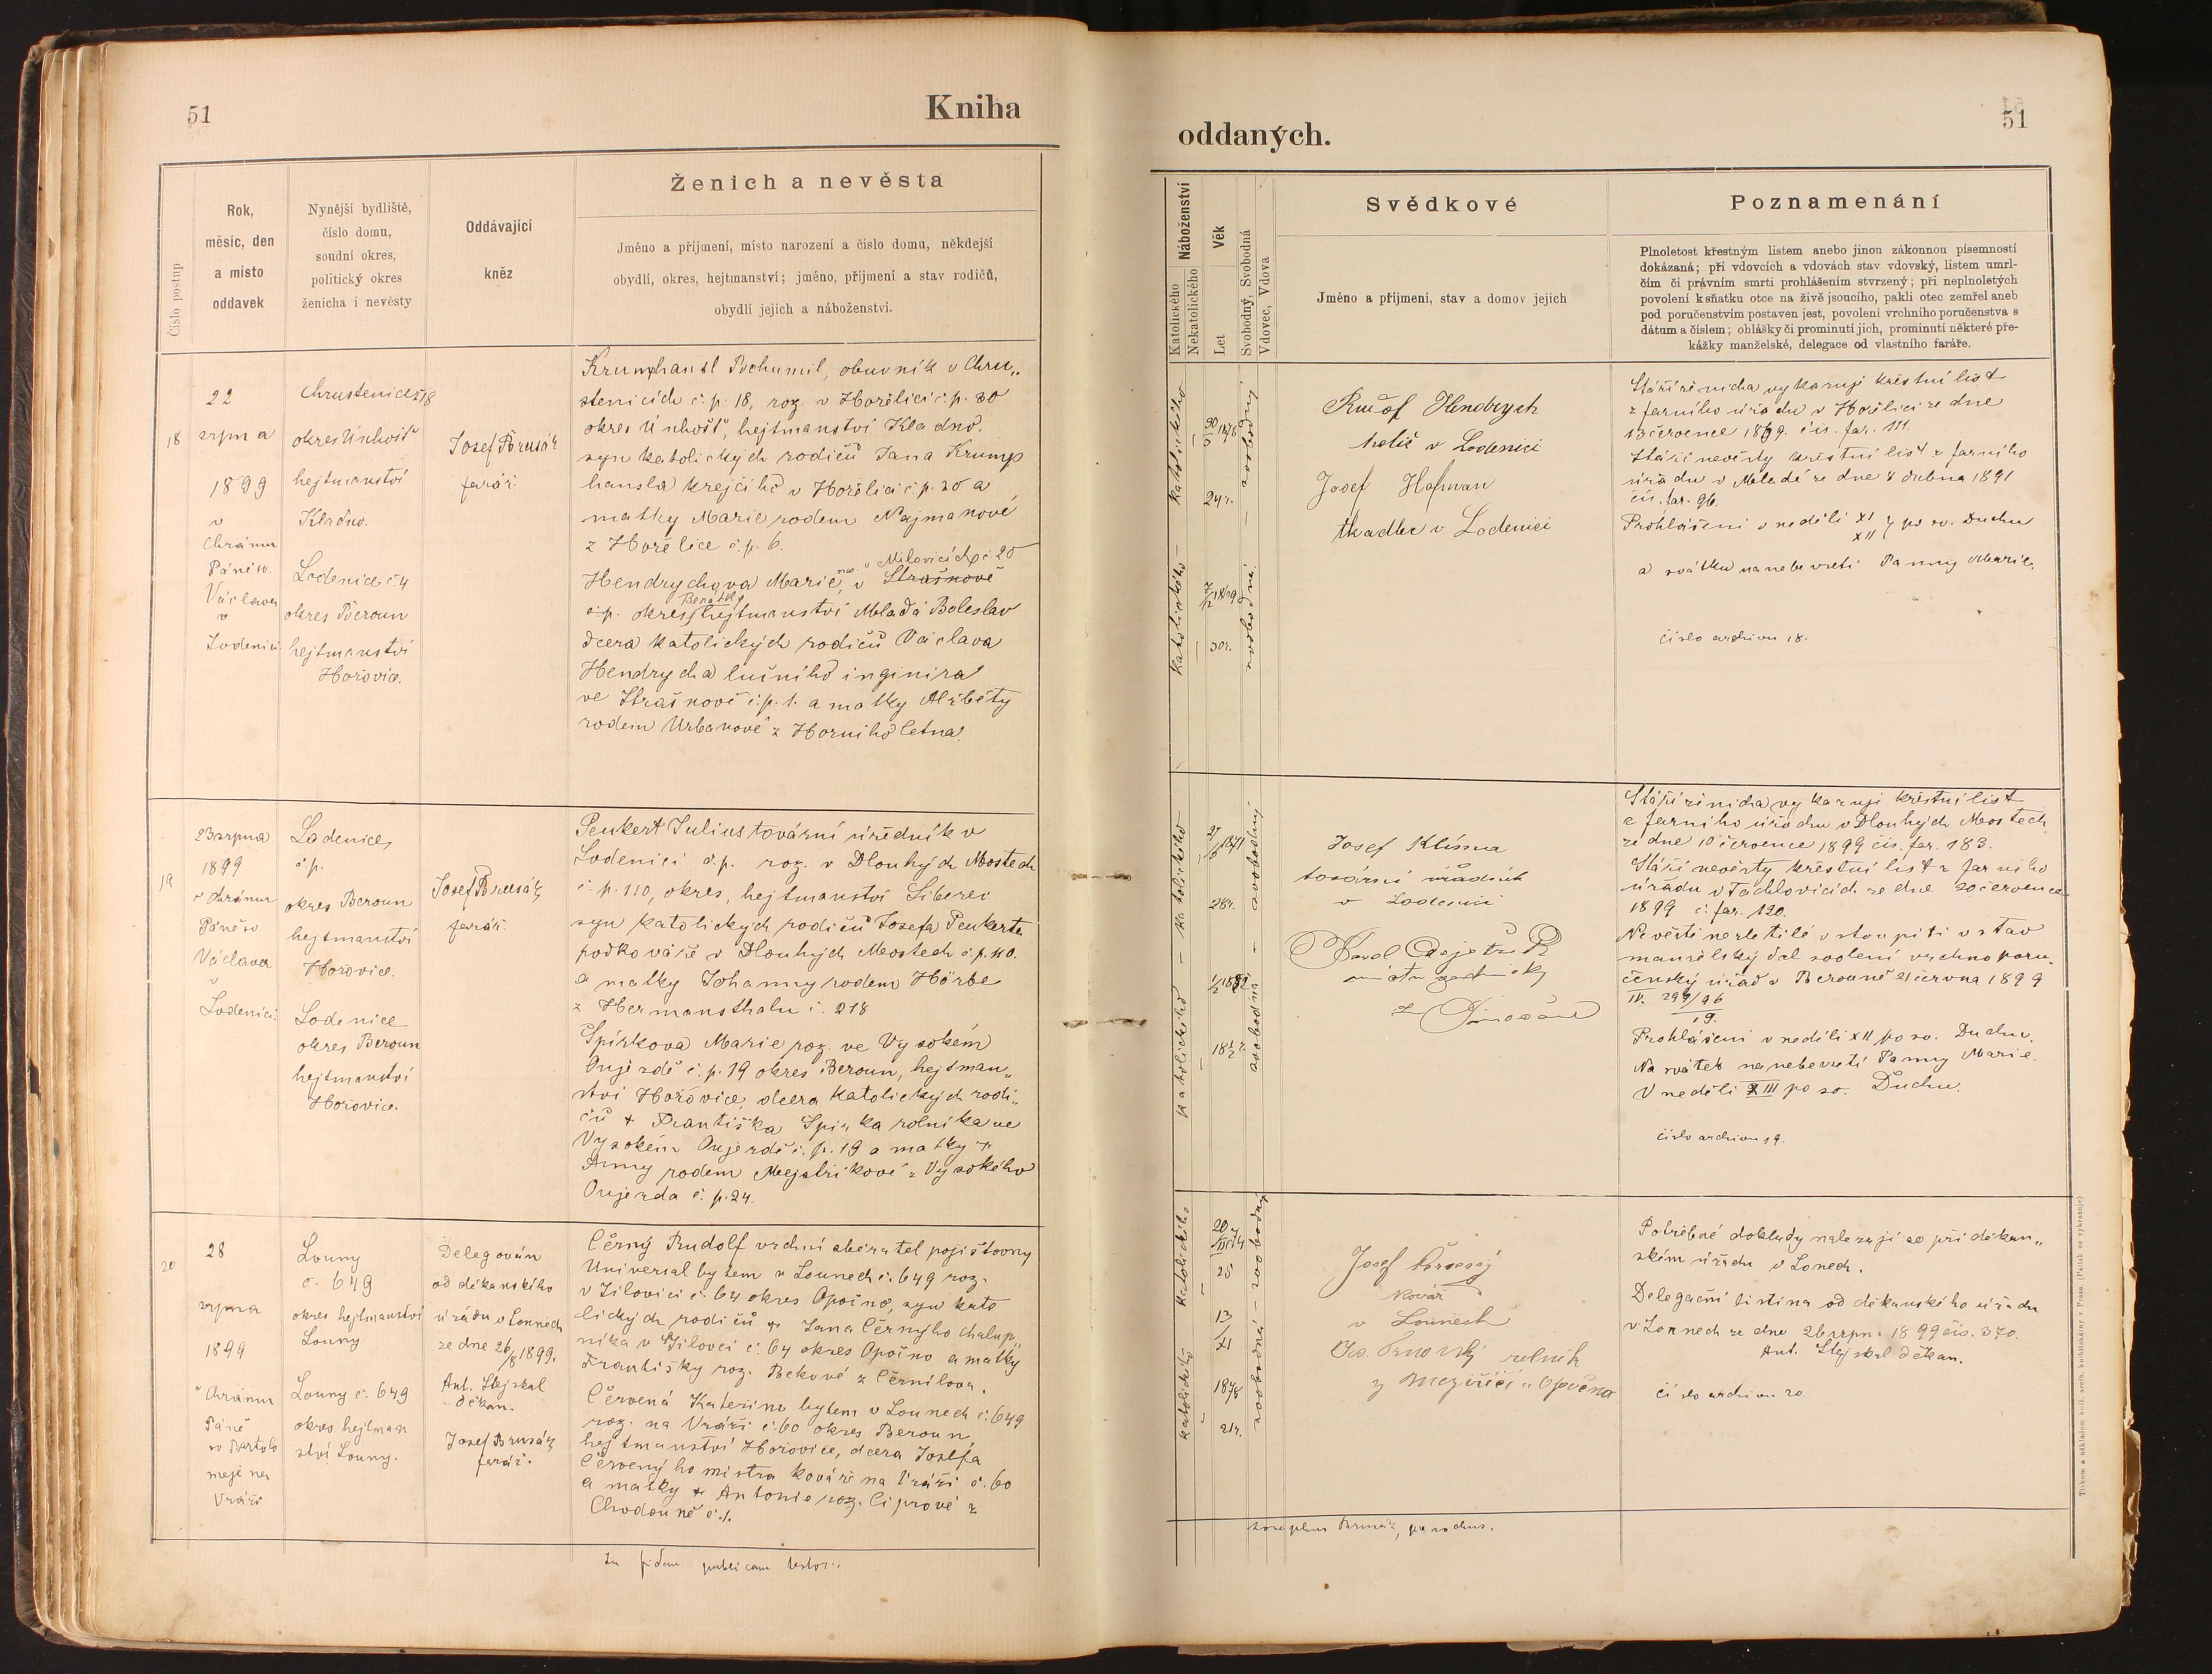 51
Kniha
Číslo postup
Rok,
měsíc, den
a místo
oddavek
Nynější bydliště,
číslo domu,
soudní okres,
politický okres
ženicha i nevěsty
Oddávající
kněz
Ženich a nevěsta
Jméno a příjmení, místo narození a číslo domu, někdejší
obydlí, okres, hejtmanství; jméno, příjmení a stav rodičů,
obydlí jejich a náboženství.
18
22
srpna
1899
v
Chrámu
Páně sv.
Václava
v
Lodenici
Chrustenice č 18
okres Únhošť
hejtmanství
Kladno.
Lodenice č 4
okres Beroun
hejtmanství
Hořovice.
Josef Brusák
farář.
Krumphansl Bohumil, obuvník v Chru„
stenicích č. p. 18, roz. v Hořelici č. p. 30
okres Únhošť, hejtmanství Kladno.
syn katolických rodičů Jana Krump
hansla krejčího v Hořelici č. p. 30 a
matky Marie rodem Najmanové
z Hořelice č. p. 6.
nar. v Milovicích č 20
Hendrychova Marie, v Strašnově
Benátky
č. p. okres, hejtmanství Mladá Boleslav
dcera katolických rodičů Václava
Hendrycha lučního inginira
ve Strašnově č. p. 1. a matky Alžběty
rodem Urbanové z Horního letna.
19
23 srpna
1899
v chrámu
Páně sv
Václava
v
Lodenici.
Lodenice,
č. p.
okres Beroun
hejtmanství
Hořovice.
Lodenice
okres Beroun
hejtmanství
Hořovice.
Josef Brusák
farář.
Peukert Julius tovární úředník v
Lodenici č. p. roz. v Dlouhých Mostech
č. p. 110, okres, hejtmanství Liberec
syn katolických rodičů Josefa Peukerta
podkováře v Dlouhých Mostech č. p. 110.
a matky Johanny rodem Hörbe
z Hermansthalu č. 218
Špírkova Marie roz. ve Vysokém
Oujezdě č. p. 19 okres Beroun, hejtman„
ství Hořovice, dcera katolických rodi„
čů † Františka Špirka rolníka ve
Vysokém Oujezdě č. p. 19 a matky †
Anny rodem Mejstříkové z Vysokého
Oujezda č. p. 24.
20
28
srpna
1899
v Chrámu
Páně
sv Bartolo
měje na
Vráži
Louny
č. 649
okres hejtmanství
Louny
Louny č. 649
okres hejtman
ství Louny.
Delegován
od děkanského
úřadu v Lounech
ze dne 26/8 1899.
Ant. Stejskal
děkan.
Josef Brusák
farář.
Černý Rudolf vrchní sběratel pojišťovny
Universal bytem v Lounech č. 649 roz.
v Jílovici č. 64 okres Opočno, syn kato
lických rodičů † Jana Černýho chalup
níka v Jílovci č. 64 okres Opočno a matky
Františky roz. Bekové z Černilova.
Červená Kateřina bytem v Lounech č. 649
roz. na Vráži č. 60 okres Beroun,
hejtmanství Hořovice, dcera Josefa
Červenýho mistra kováře na Vráži č. 60
a matky † Antonie roz. Ciprové z
Chodouně č. 1.
In fidem publicam testor:
51
oddaných.
Náboženství
Katolického
Nekatolického
Věk
Let
Svobodný, Svobodná
Vdovec, Vdova
Svědkové
Jméno a příjmení, stav a domov jejich
Poznamenání
Plnoletost křestným listem anebo jinou zákonnou písemností
dokázaná; při vdovcích a vdovách stav vdovský, listem umrl-
čím či právním smrti prohlášením stvrzený; při neplnoletých
povolení k sňatku otce na živě jsoucího, pakli otec zemřel aneb
pod poručenstvím postaven jest, povolení vrchního poručenstva s
dátum a číslem; ohlášky či prominutí jich, prominutí některé pře-
kážky manželské, delegace od vlastního faráře.
katolického
katolického
24 r.
30 r.
svobodný
svobodná
Hendrych
holič v Lodenici
Josef Hofman
tkadlec v Lodenici
Stáří ženicha vykazuje křestní list
z farního úřadu v Hořelici ze dne
13 července 1899. čís. far. 111.
Stáří nevěsty křestní list z farního
úřadu v Mladé ze dne 8 dubna 1891
čís. far. 96.
Prohlášeni v neděli XI XII } po sv. Duchu
a svátku na nebe vzetí Panny Marie.
číslo archivu 18.
katolického
katolického
28 r.
18 1/2 r.
svobodný
svobodna
Josef Klíma
tovární úředník
v Lodenici
Karel
Stáří ženicha vykazuje křestní list
z farního úřadu v Dlouhých Mostech
ze dne 10 července 1899 čís. far. 183.
Stáří nevěsty křestní list z farního
úřadu v Tachlovicích ze dne 20 července
1899 č. far. 120.
Nevěstě nezletilé vstoupiti v stav
manželský dal svolení vrchnoporu„
čenský úřad v Berouně 21 června 1899
IV. 294/96
19.
Prohlášeni v neděli XII po sv. Duchu.
Na svátek na nebevzetí Panny Marie.
V neděli XIII po sv. Duchu.
číslo archivu 19.
katolického
katolického
25
13
XI
1878
21 r.
svobodný
svobodná
Josef Červený
kovář
v Lounech
rolník
z Meziříčí u Opočna
Potřebné doklady nalezají se při děkan„
ském úřadu v Lonech.
Delegační listina od děkanského úřadu
v Lounech ze dne 26 srpn. 1899 čís. 370.
Ant. Stejskal děkan.
číslo archivu 20.
Josephus Brusák, parochus.
Tiskem a nákladem kníž. arcib. knihtiskárny v Praze. (Padělk se vyhražuje)